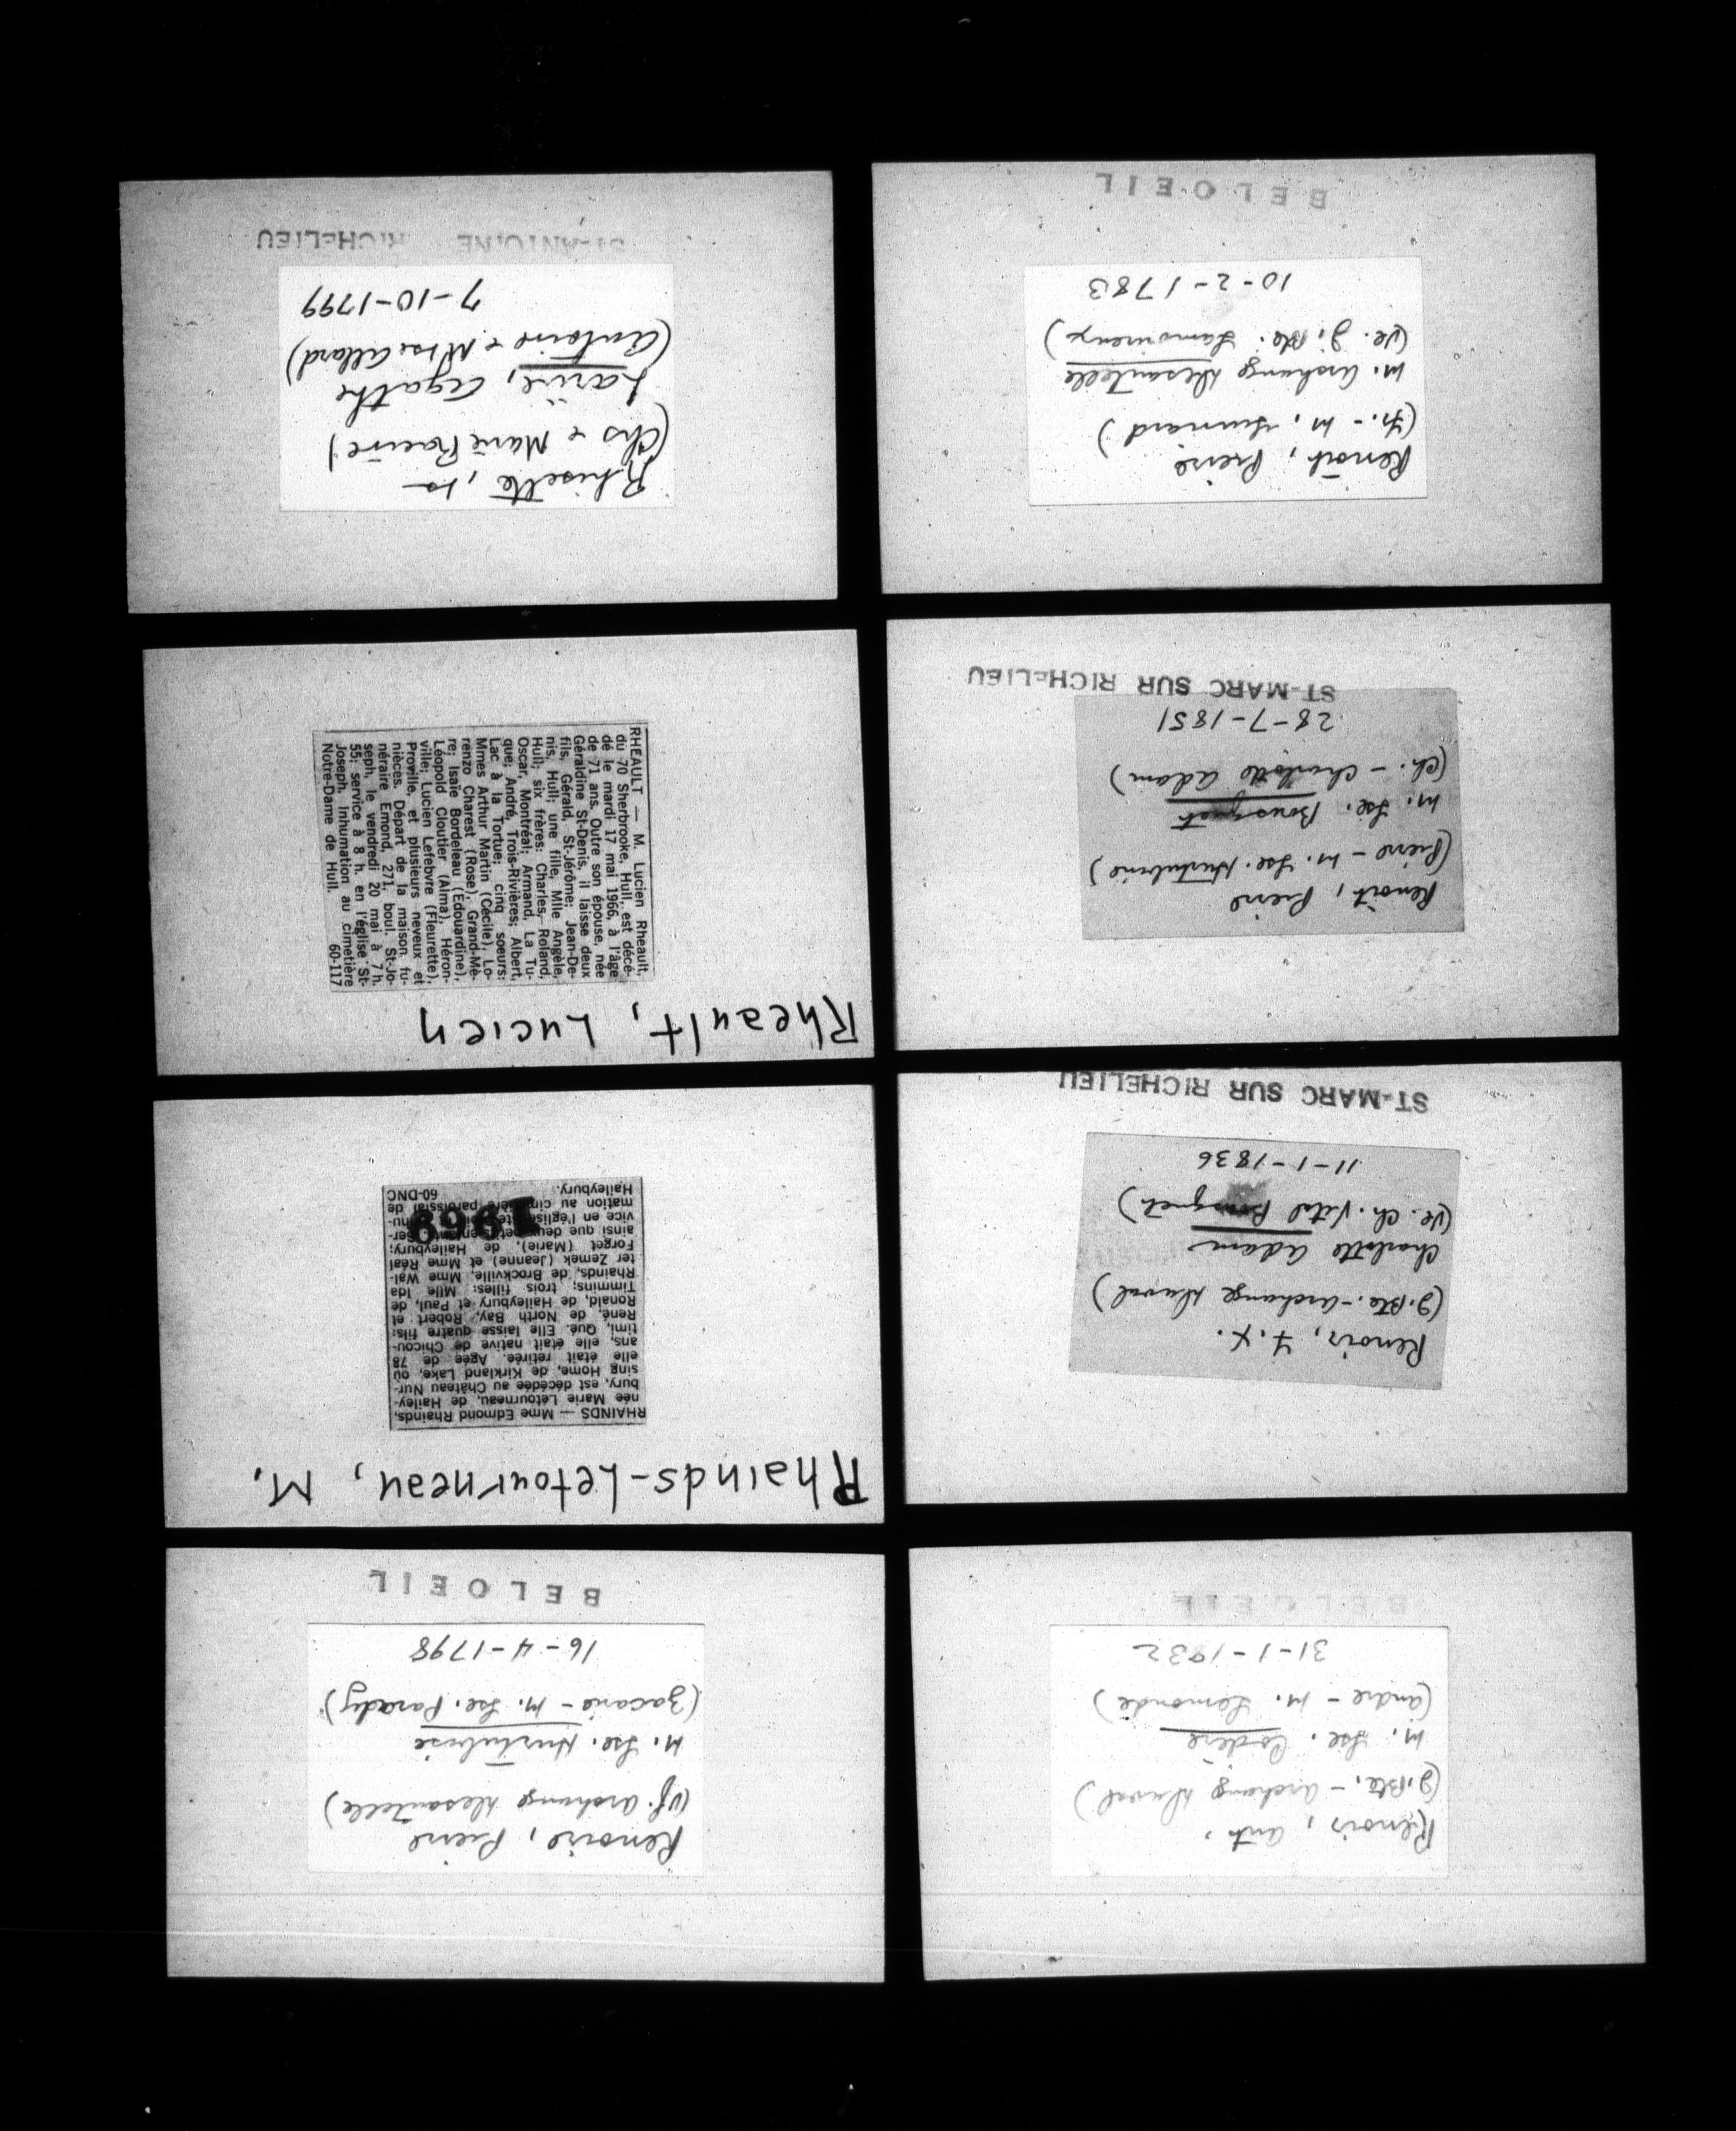 Renois, Ant.
(J. Bte. - Archange Duval)
M. Lse. Codère
(André - M. Lemonde)
31-1-1832
BELOEIL
Renois, F. X.
(J. Bte. - Archange Duval)
Charlotte Adam
(Ve. Ch. Vital Bousquet)
11-1-1836
ST-MARC SUR RICHELIEU
Renoit, Pierre
(Pierre - M. Lse. Hurtubise)
M. Lse. Bousquet
(Ch. - Charlotte Adam)
28-7-1851
ST-MARC SUR RICHELIEU
Renoit, Pierre
(Fr. - M.
M. Archange Desautelle
(Ve. J. Bte. Lamoureux)
10-2-1783
BELOEIL
Renoire, Pierre
(Vf. Archange Desautelle)
M. Lse. Hurtubise
(Zacarie - M. Lse. Parady)
16-4-1798
BELOEIL
Rhainds-Letourneau, M.
RHAINDS — Mme Edmond Rhainds,
née Marie Létourneau, de Hailey-
bury, est décédée au Château Nur-
sing Home, de Kirkland Lake, où
elle était retirée. Agée de 78
ans, elle était native de Chicou-
timi, Qué. Elle laisse quatre fils:
René, de North Bay, Robert et
Ronald, de Haileybury et Paul, de
Timmins; trois filles: Mlle Ida
Rhainds, de Brockville, Mme Wal-
ter Zemek (Jeanne) et Mme Réal
Forget (Marie), de Haileybury;
ainsi que deux petits-enfants. Ser-
vice en l'église Ste-
mation au cimetière paroissial de
Haileybury. 60-DNC
1968
Rheault, Lucien
RHEAULT — M. Lucien Rheault,
du 70 Sherbrooke, Hull, est décé-
dé le mardi 17 mai 1966, à l'âge
de 71 ans. Outre son épouse, née
Géraldine St-Denis, il laisse deux
fils, Gérald, St-Jérôme; Jean-De-
nis, Hull; une fille, Mlle Angèle,
Hull; six frères: Charles, Roland,
Oscar, Montréal; Armand, La Tu-
que; André, Trois-Rivières; Albert,
Lac à la Tortue; cinq soeurs:
Mmes Arthur Martin (Cécile), Lo-
renzo Charest (Rose), Grand-Mè-
re; Isaïe Bordeleau (Edouardine),
Léopold Cloutier (Alma), Héron-
ville; Lucien Lefebvre (Fleurette),
Proville, et plusieurs neveux et
nièces. Départ de la maison fu-
néraire Emond, 271, boul. St-Jo-
seph, le vendredi 20 mai à 7 h.
55; service à 8 h. en l'église St-
Joseph. Inhumation au cimetière
Notre-Dame de Hull. 60-117
Rhisette,
(Chs & Marie Racine)
Larive, Agathe
(Antoine & M Lse Allard)
7-10-1799
ST-ANTOINE RICHELIEU